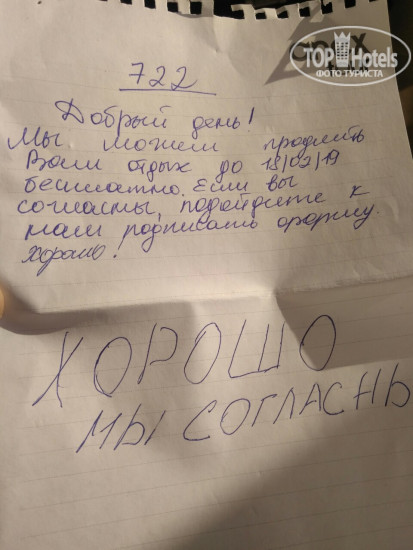 TOP Hotels
ФОТО ТУРИСТА
722
Добрый день!
Мы можем продлить
Вам отдых до 18/02/19
бесплатно. Если вы
согласны, подойдите к
нам подписать форму.
хорошо!
ХОРОШО
МЫ СОГЛАСНЫ